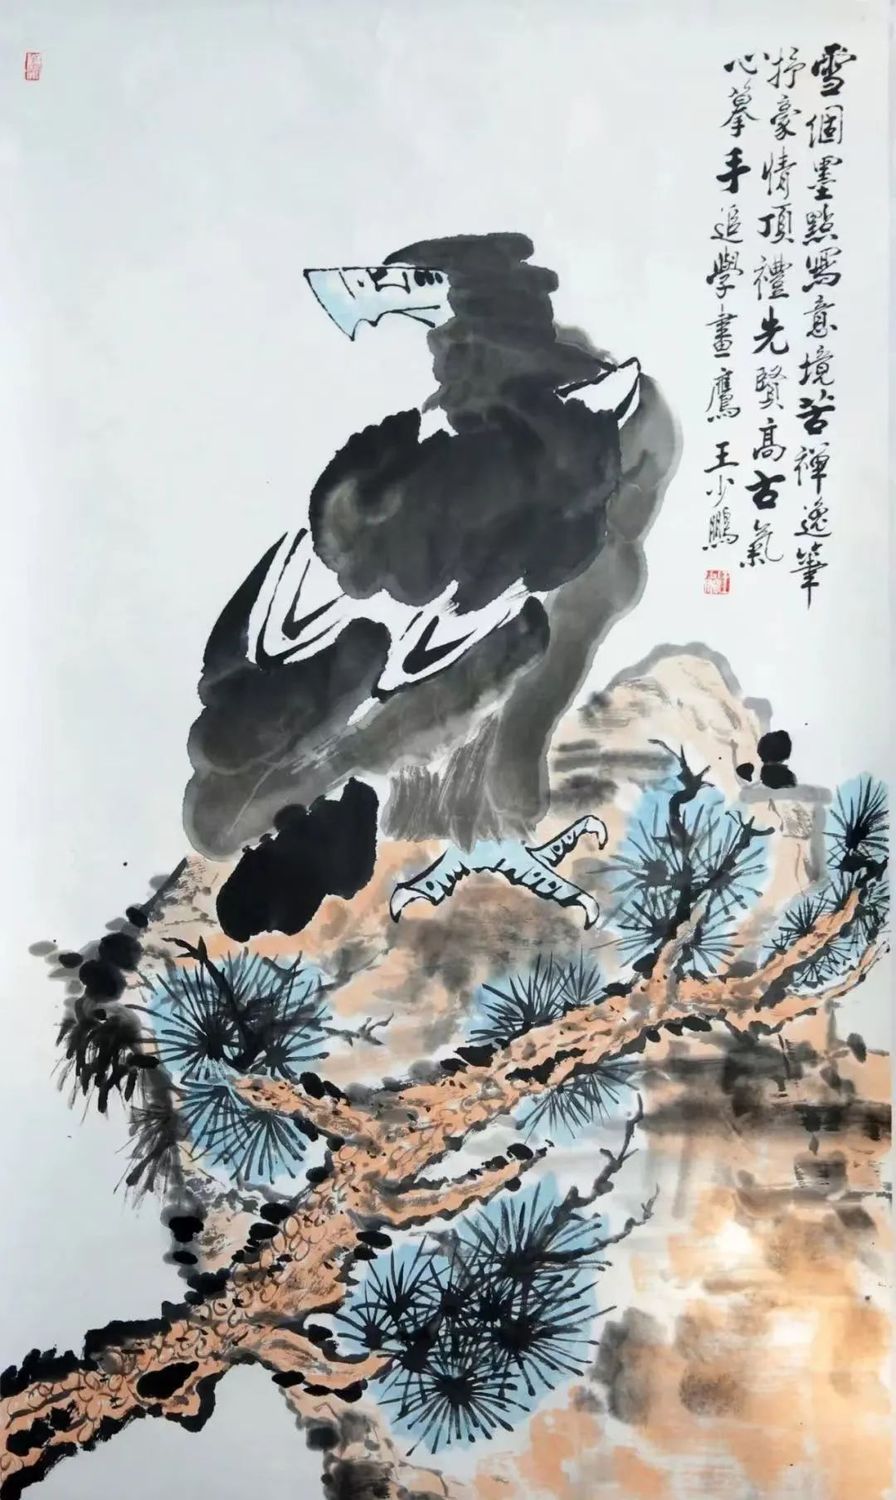 雪個墨點寫意境苦禪逸筆
抒豪情頂禮先賢高古氣
心摹手追學畫鷹 王少鵬